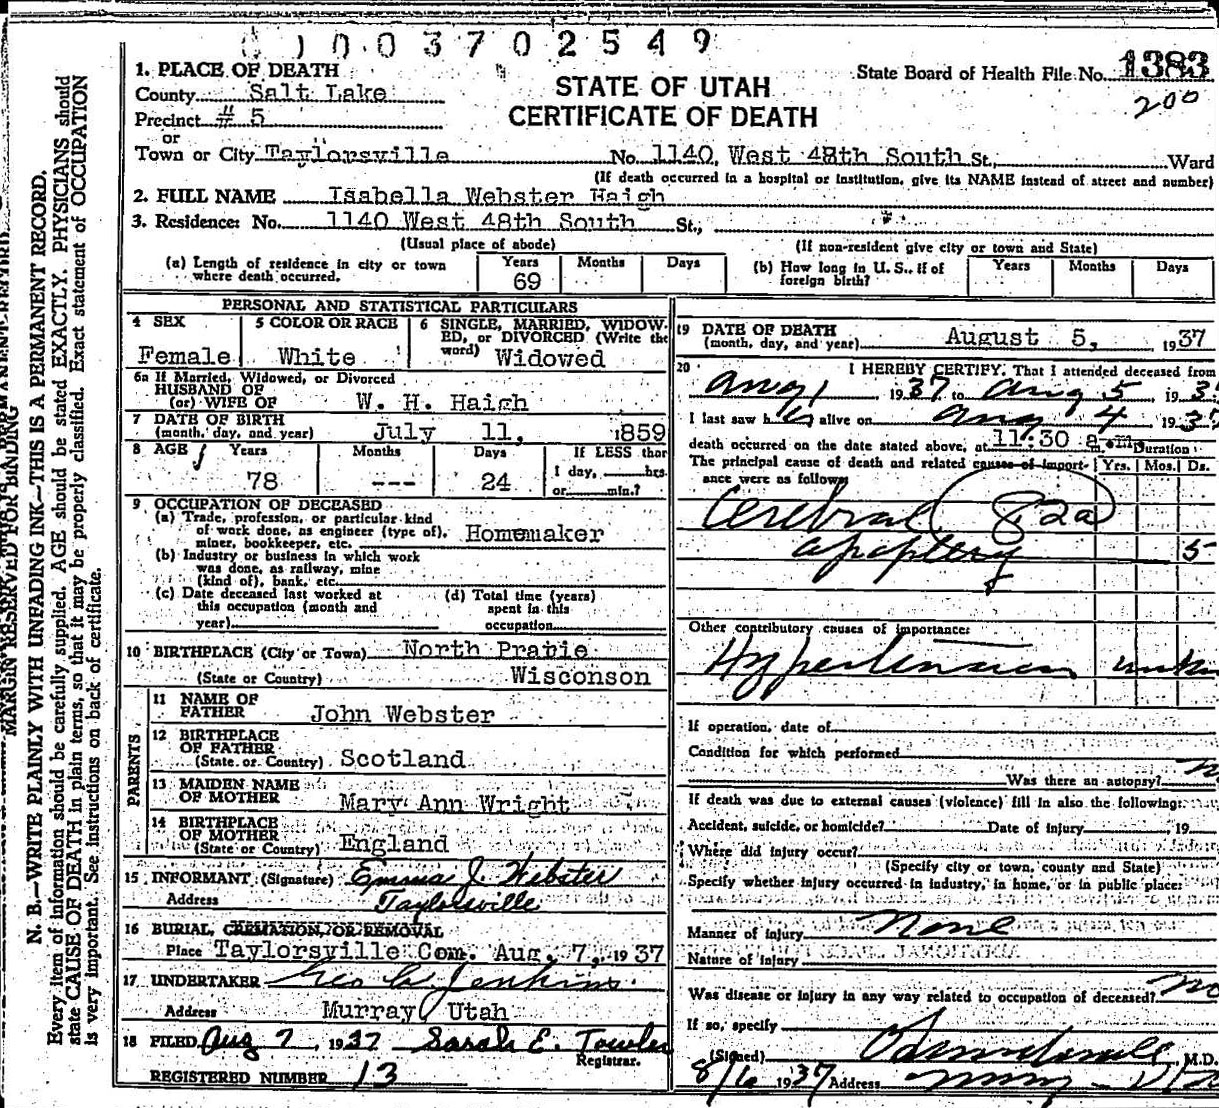 003702549
1. PLACE OF DEATH
State Board of Health File No. 1383
County Salt Lake
STATE OF UTAH
200
Precinct # 5
CERTIFICATE OF DEATH
or
Town or City Taylorsville No. 1140 West 48th South St., Ward
(If death occurred in a hospital or institution, give its NAME instead of street and number)
2. FULL NAME Isabella Webster Haigh
3. Residence: No. 1140 West 48th South St.,
(Usual place of abode) (If non-resident give city or town and State)
(a) Length of residence in city or town where death occurred. Years 69 Months Days
(b) How long in U. S., if of foreign birth? Years Months Days
PERSONAL AND STATISTICAL PARTICULARS
4 SEX Female
5 COLOR OR RACE White
6 SINGLE, MARRIED, WIDOWED, or DIVORCED (Write the word) Widowed
6a If Married, Widowed, or Divorced
HUSBAND OF
(or) WIFE OF W. H. Haigh
7 DATE OF BIRTH
(month, day, and year) July 11, 1859
8 AGE Years 78 Months --- Days 24 If LESS than
1 day, hrs.
or min.?
9 OCCUPATION OF DECEASED
(a) Trade, profession, or particular kind
of work done, as engineer (type of), Homemaker
miner, bookkeeper, etc.
(b) Industry or business in which work
was done, as railway, mine
(kind of), bank, etc.
(c) Date deceased last worked at
this occupation (month and
year)
(d) Total time (years)
spent in this
occupation
10 BIRTHPLACE (City or Town) North Pratie
(State or Country) Wisconson
PARENTS
11 NAME OF
FATHER John Webster
12 BIRTHPLACE
OF FATHER
(State or Country) Scotland
13 MAIDEN NAME
OF MOTHER Mary Ann Wright
14 BIRTHPLACE
OF MOTHER
(State or Country) England
15 INFORMANT (Signature) Emma J. Webster
Address Taylorsville
16 BURIAL, CREMATION, OR REMOVAL
Place Taylorsville Cem. Aug. 7, 1937
17 UNDERTAKER Geo. W. Jenkins
Address Murray Utah
18 FILED Aug 7, 1937 Sarah E. Towler
Registrar.
REGISTERED NUMBER 13
19 DATE OF DEATH
(month, day, and year) August 5, 1937
20 I HEREBY CERTIFY, That I attended deceased from
Aug 1 1937 to Aug 5, 193
I last saw her alive on Aug 4 193
death occurred on the date stated above, at 11:30 a.m. Duration
The principal cause of death and related causes of import- Yrs. Mos. Ds.
ance were as follows
Cerebral 82a
apoplexy 5
Other contributory causes of importance:
Hypertension unkn
If operation, date of
Condition for which performed
Was there an autopsy?
If death was due to external causes (violence) fill in also the following:
Accident, suicide, or homicide? Date of injury , 19
Where did injury occur?
(Specify city or town, county and State)
Specify whether injury occurred in industry, in home, or in public place:
Manner of injury None
Nature of injury
Was disease or injury in any way related to occupation of deceased? no
If so, specify
(Signed) , M.D.
8/6 1937 Address
MARGIN RESERVED FOR BINDING
N. B.—WRITE PLAINLY WITH UNFADING INK—THIS IS A PERMANENT RECORD.
Every item of information should be carefully supplied. AGE should be stated EXACTLY. PHYSICIANS should
state CAUSE OF DEATH in plain terms, so that it may be properly classified. Exact statement of OCCUPATION
is very important. See instructions on back of certificate.